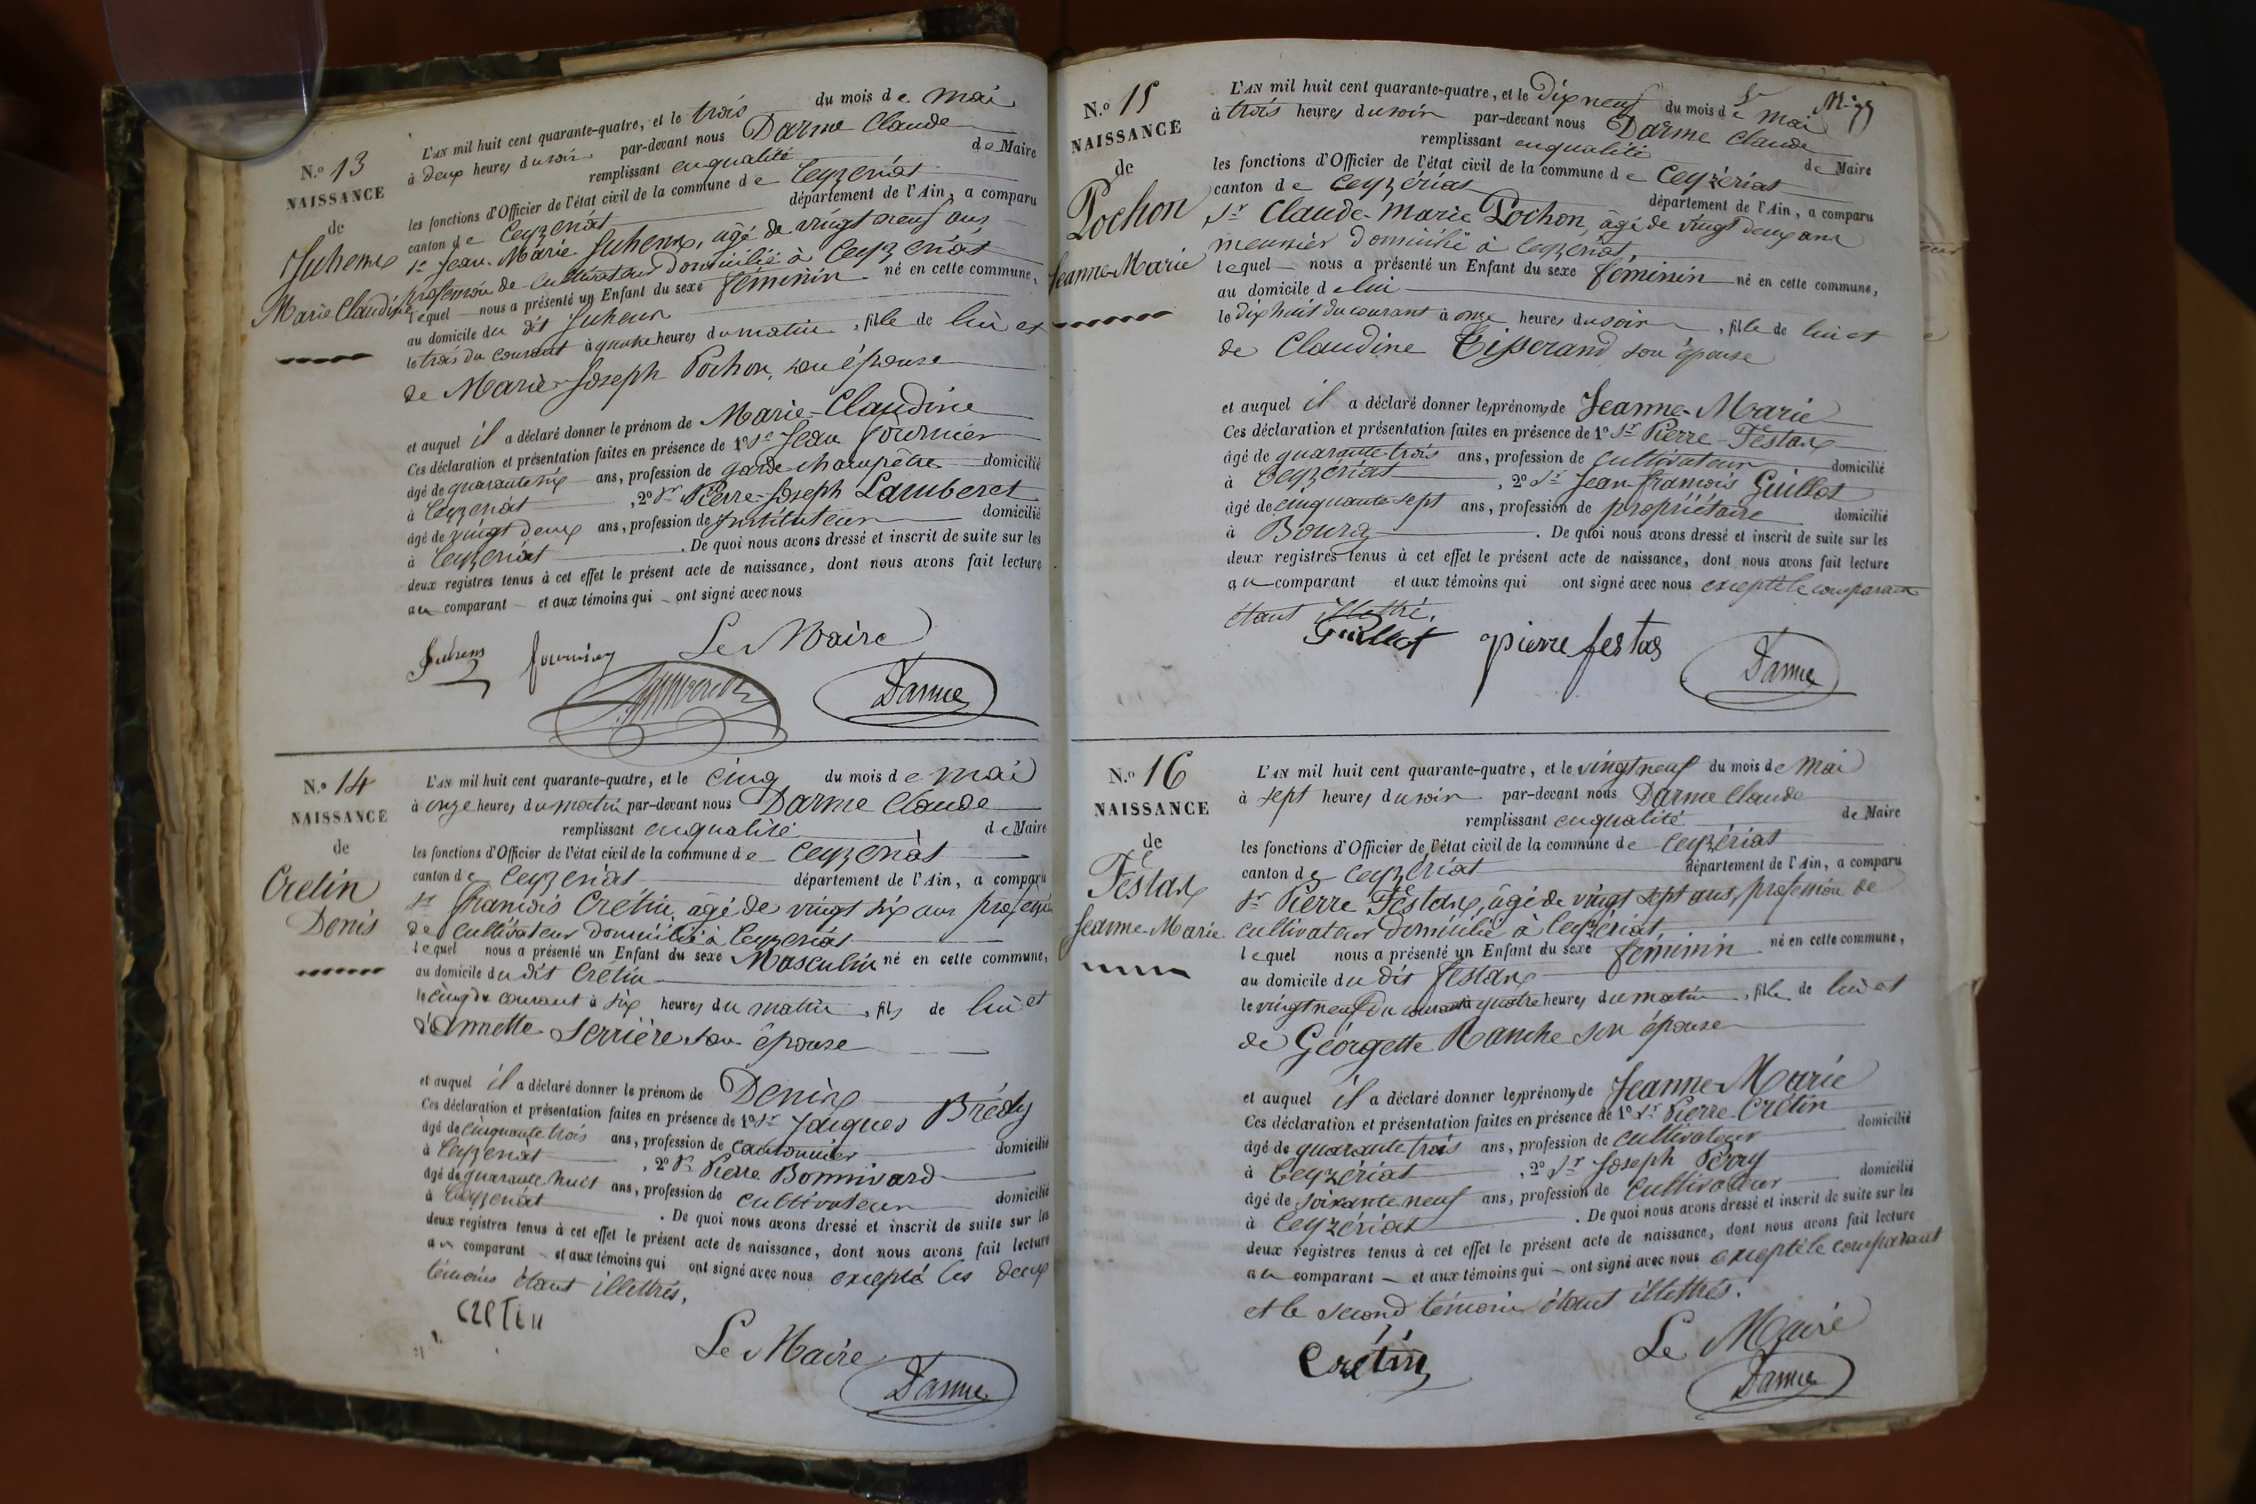 N.o 13
NAISSANCE
de
Juhem
Marie Claudine
L'AN mil huit cent quarante-quatre, et le trois du mois de mai
à deux heures du soir par-devant nous Darme Claude
remplissant en qualité de Maire
les fonctions d'Officier de l'état civil de la commune de Ceyzériat
canton de Ceyzériat département de l'Ain, a comparu
Sr Jean-Marie Juhem, âgé de vingt neuf ans
profession de cultivateur domicilié à Ceyzériat
lequel nous a présenté un Enfant du sexe féminin né en cette commune,
au domicile du dit Juhem
le trois du courant à heures du matin, fille de lui et
de Marie-Joseph Pochon, son épouse
et auquel il a déclaré donner le prénom de Marie-Claudine
Ces déclaration et présentation faites en présence de 1o Sr Jean fournier
âgé de quarante six ans, profession de garde champêtre domicilié
à Ceyzériat, 2o Sr Pierre-Joseph Lamberet
âgé de vingt deux ans, profession de Instituteur domicilié
à Ceyzériat. De quoi nous avons dressé et inscrit de suite sur les
deux registres tenus à cet effet le présent acte de naissance, dont nous avons fait lecture
au comparant et aux témoins qui ont signé avec nous
Le Maire
Juhem fournier
Darme
N.o 14
NAISSANCE
de
Cretin
Denis
L'AN mil huit cent quarante-quatre, et le cinq du mois de mai
à onze heures du matin par-devant nous Darme Claude
remplissant en qualité de Maire
les fonctions d'Officier de l'état civil de la commune de Ceyzériat
canton de Ceyzériat département de l'Ain, a comparu
Sr françois Crétin, âgé de vingt six ans profession
de cultivateur domicilié à Ceyzériat
lequel nous a présenté un Enfant du sexe Masculin né en cette commune,
au domicile du dit Cretin
le cinq du courant à six heures du matin, fils de lui et
d'Annette Serrière son épouse
et auquel il a déclaré donner le prénom de Denis
Ces déclaration et présentation faites en présence de 1o Sr Jacques Brédy
âgé de cinquante trois ans, profession de cantonnier domicilié
à Ceyzériat, 2o Sr Pierre Bonnivard
âgé de quarante huit ans, profession de cultivateur domicilié
à Ceyzériat. De quoi nous avons dressé et inscrit de suite sur les
deux registres tenus à cet effet le présent acte de naissance, dont nous avons fait lecture
au comparant et aux témoins qui ont signé avec nous excepté les deux
témoins étant illettrés,
CRETIN
Le Maire
Darme
N.o 15
NAISSANCE
de
Pochon
Jeanne-Marie
L'AN mil huit cent quarante-quatre, et le Dix neuf du mois de mai
à trois heures du soir par-devant nous Darme Claude
remplissant en qualité de Maire
les fonctions d'Officier de l'état civil de la commune de Ceyzériat
canton de Ceyzériat département de l'Ain, a comparu
Sr Claude-Marie Pochon, âgé de vingt deux ans
meunier domicilié à Ceyzériat,
lequel nous a présenté un Enfant du sexe féminin né en cette commune,
au domicile de lui
le dix huit du courant à onze heures du soir, fille de lui et
de Claudine Tisserand, son épouse
et auquel il a déclaré donner les prénoms de Jeanne-Marie
Ces déclaration et présentation faites en présence de 1o Sr Pierre Féstax
âgé de quarante trois ans, profession de cultivateur domicilié
à Ceyzériat, 2o Sr Jean-francois Guillot
âgé de cinquante sept ans, profession de propriétaire domicilié
à Bourg. De quoi nous avons dressé et inscrit de suite sur les
deux registres tenus à cet effet le présent acte de naissance, dont nous avons fait lecture
au comparant et aux témoins qui ont signé avec nous excepté le comparant
étant illettré,
Guillot pierre festas
Darme
N.o 16
NAISSANCE
de
Féstax
Jeanne-Marie
L'AN mil huit cent quarante-quatre, et le vingt neuf du mois de mai
à sept heures du soir par-devant nous Darme Claude
remplissant en qualité de Maire
les fonctions d'Officier de l'état civil de la commune de Ceyzériat
canton de Ceyzériat département de l'Ain, a comparu
Sr Pierre Féstax, âgé de vingt sept ans, profession de
cultivateur domicilié à Ceyzériat,
lequel nous a présenté un Enfant du sexe féminin né en cette commune,
au domicile du dit Festax
le vingt neuf du courant à quatre heures du matin, fille de lui et
de Géorgette Manche son épouse
et auquel il a déclaré donner les prénoms de Jeanne-Marie
Ces déclaration et présentation faites en présence de 1o Sr Pierre Crétin
âgé de quarante trois ans, profession de cultivateur domicilié
à Ceyzériat, 2o Sr Joseph Perry
âgé de soixante neuf ans, profession de cultivateur domicilié
à Ceyzériat. De quoi nous avons dressé et inscrit de suite sur les
deux registres tenus à cet effet le présent acte de naissance, dont nous avons fait lecture
au comparant et aux témoins qui ont signé avec nous excepté le comparant
et le second témoin étant illettrés.
Le Maire
Crétin
Darme